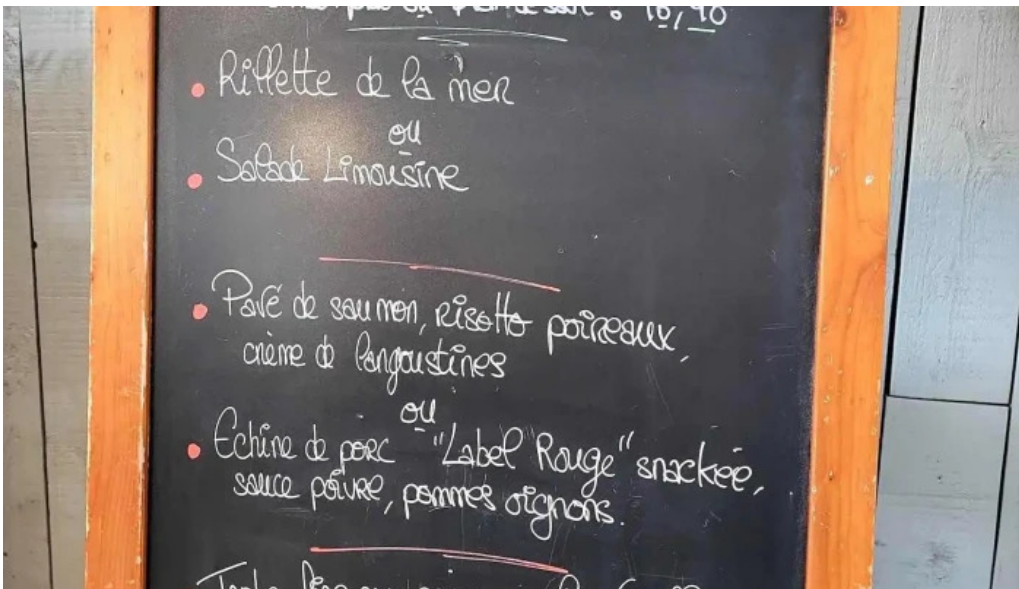 ou 16,90
• Rillette de la mer
ou
• Salade Limousine
• Pavé de saumon, risotto poireaux,
crème de langoustines
ou
• Echine de porc "Label Rouge" snackée,
sauce poivre, pommes oignons.